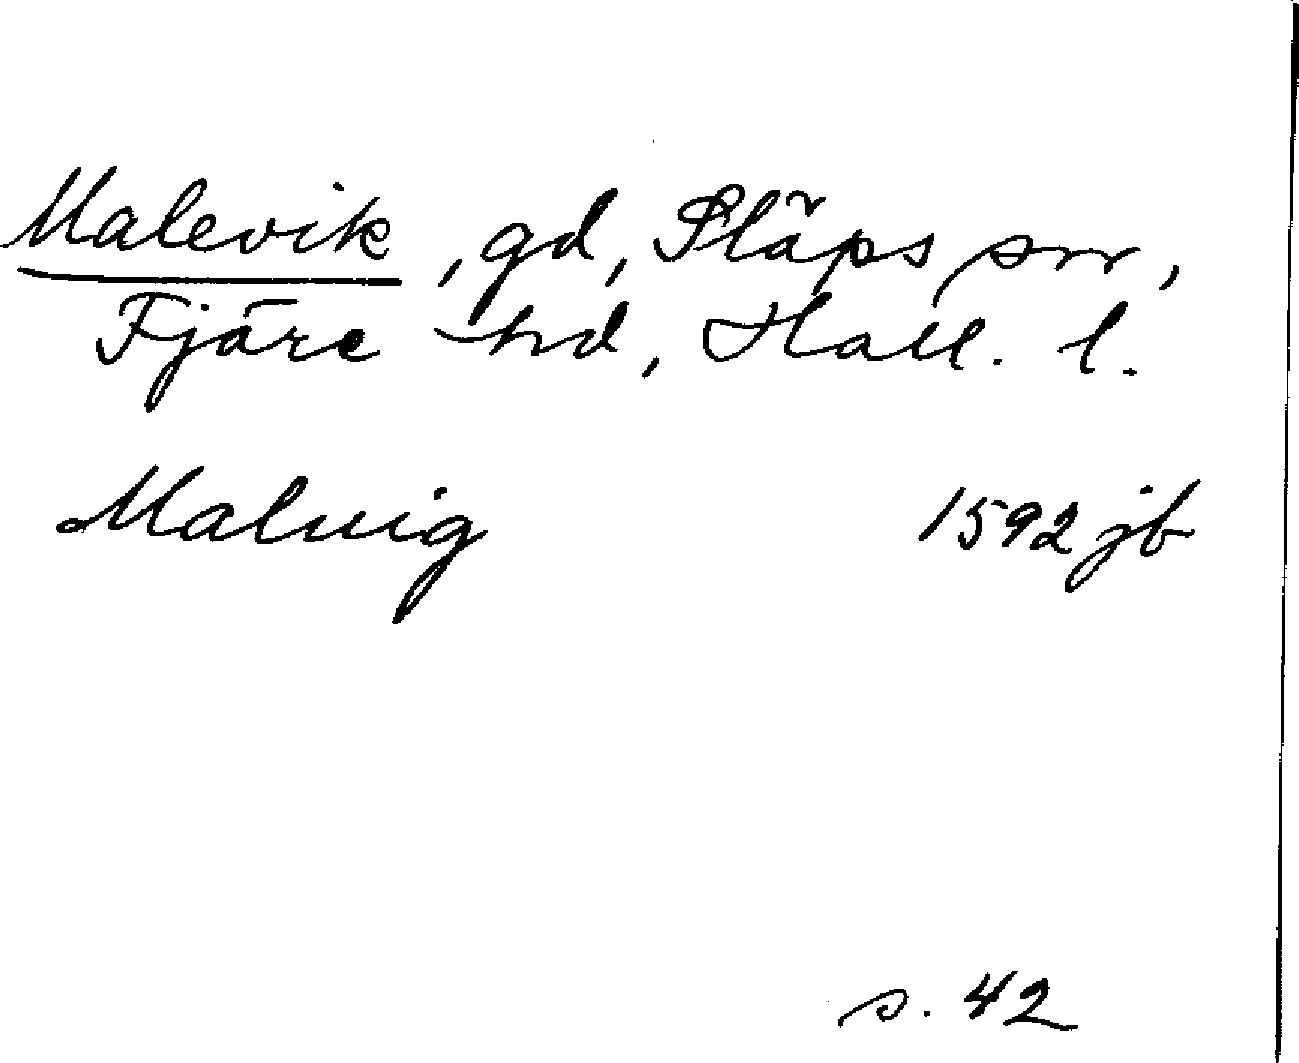 Malevik, gd, Släps sn,
Fjäre hd, Hall. l.
Maluig 1592 jb
s. 42